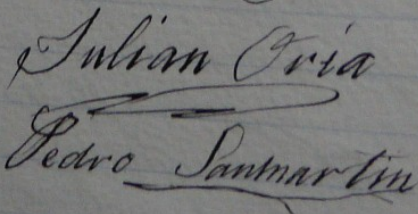 Julian Oria
Pedro Sanmartin